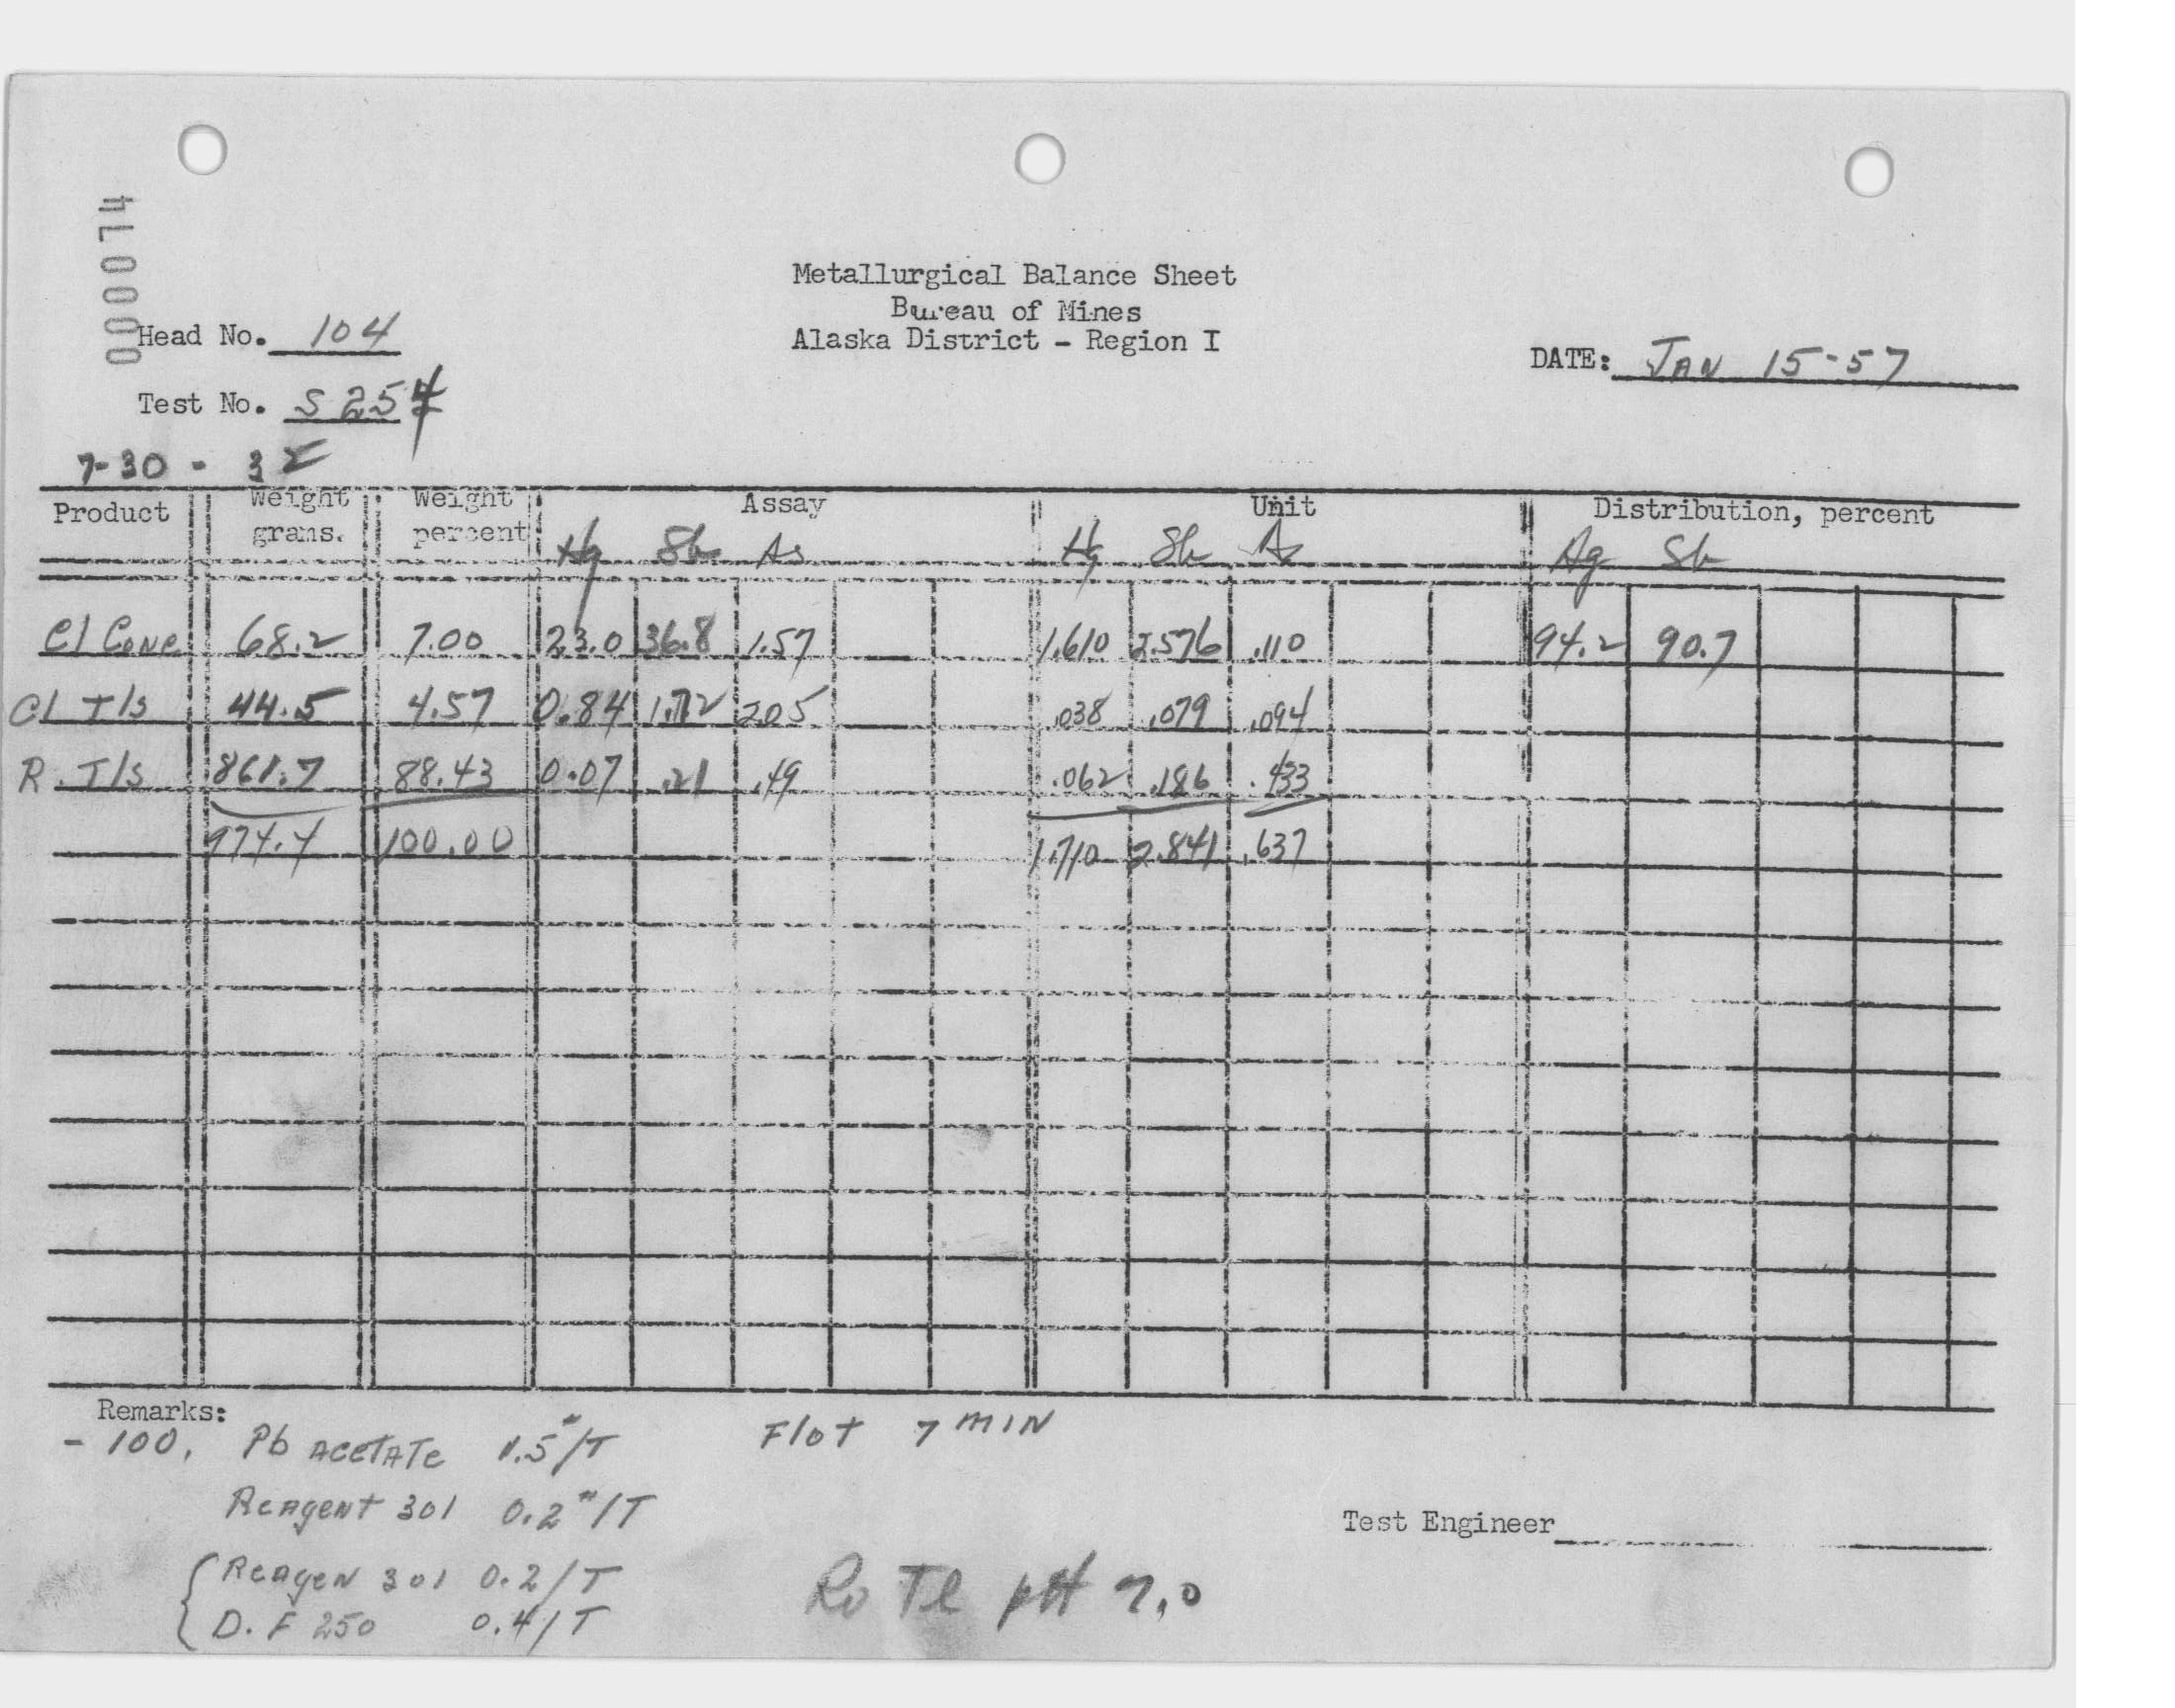 000074
Metallurgical Balance Sheet
Bureau of Mines
Alaska District - Region I
Head No. 104
DATE: JAN 15-57
Test No. S254
7-30 - 32
Product Weight grams. Weight percent Assay Unit Distribution, percent
Hg Sb As Hg Sb As Ag Sb
Cl Conc 68.2 7.00 23.0 36.8 1.57 1.610 2.576 .110 94.2 90.7
Cl Tls 44.5 4.57 0.84 1.72 2.05 .038 .079 .094
R. Tls 861.7 88.43 0.07 .21 .49 .062 .186 .433
974.4 100.00 1.710 2.841 .637
Remarks:
- 100, Pb ACETATE 1.5#/T Flot 7 MIN
Reagent 301 0.2#/T
Test Engineer
{ Reagen 301 0.2/T
D.F 250 0.4/T
Ro Tl pH 7.0